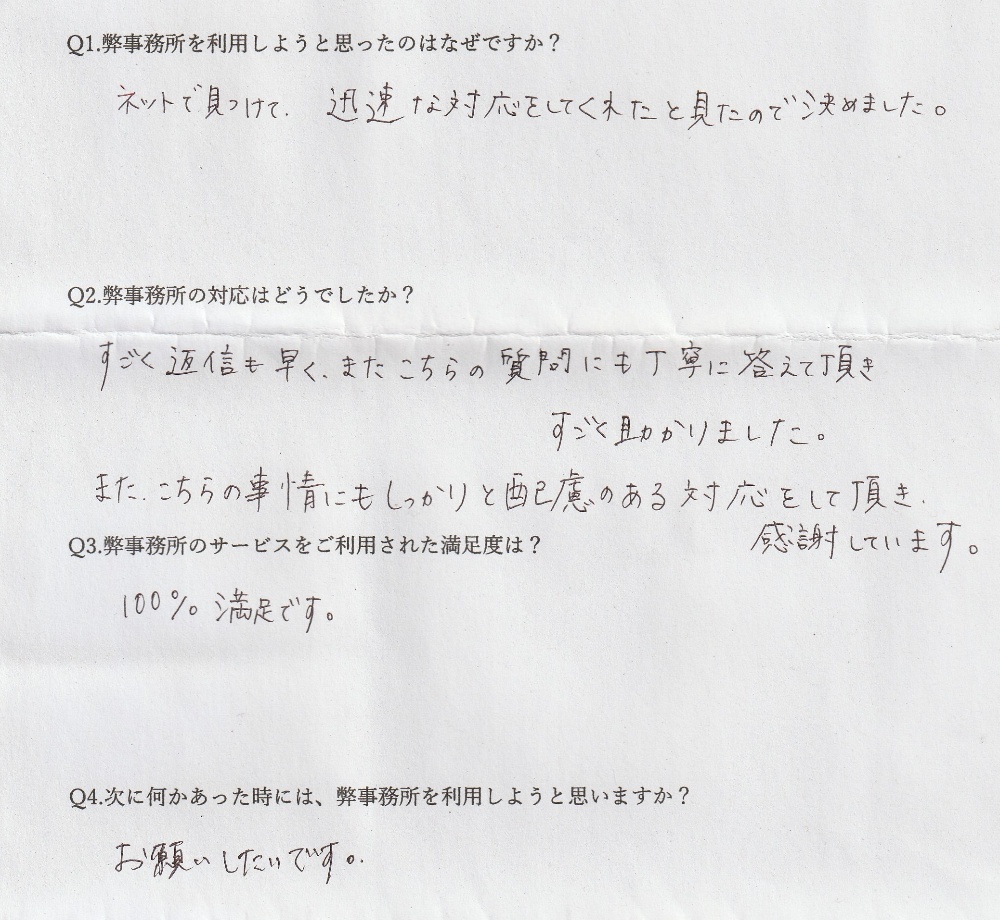 Q1.弊事務所を利用しようと思ったのはなぜですか？
ネットで見つけて、迅速な対応をしてくれたと見たので決めました。
Q2.弊事務所の対応はどうでしたか？
すごく返信も早く、またこちらの質問にも丁寧に答えて頂き
すごく助かりました。
また、こちらの事情にもしっかりと配慮のある対応をして頂き、
感謝しています。
Q3.弊事務所のサービスをご利用された満足度は？
100% 満足です。
Q4.次に何かあった時には、弊事務所を利用しようと思いますか？
お願いしたいです。